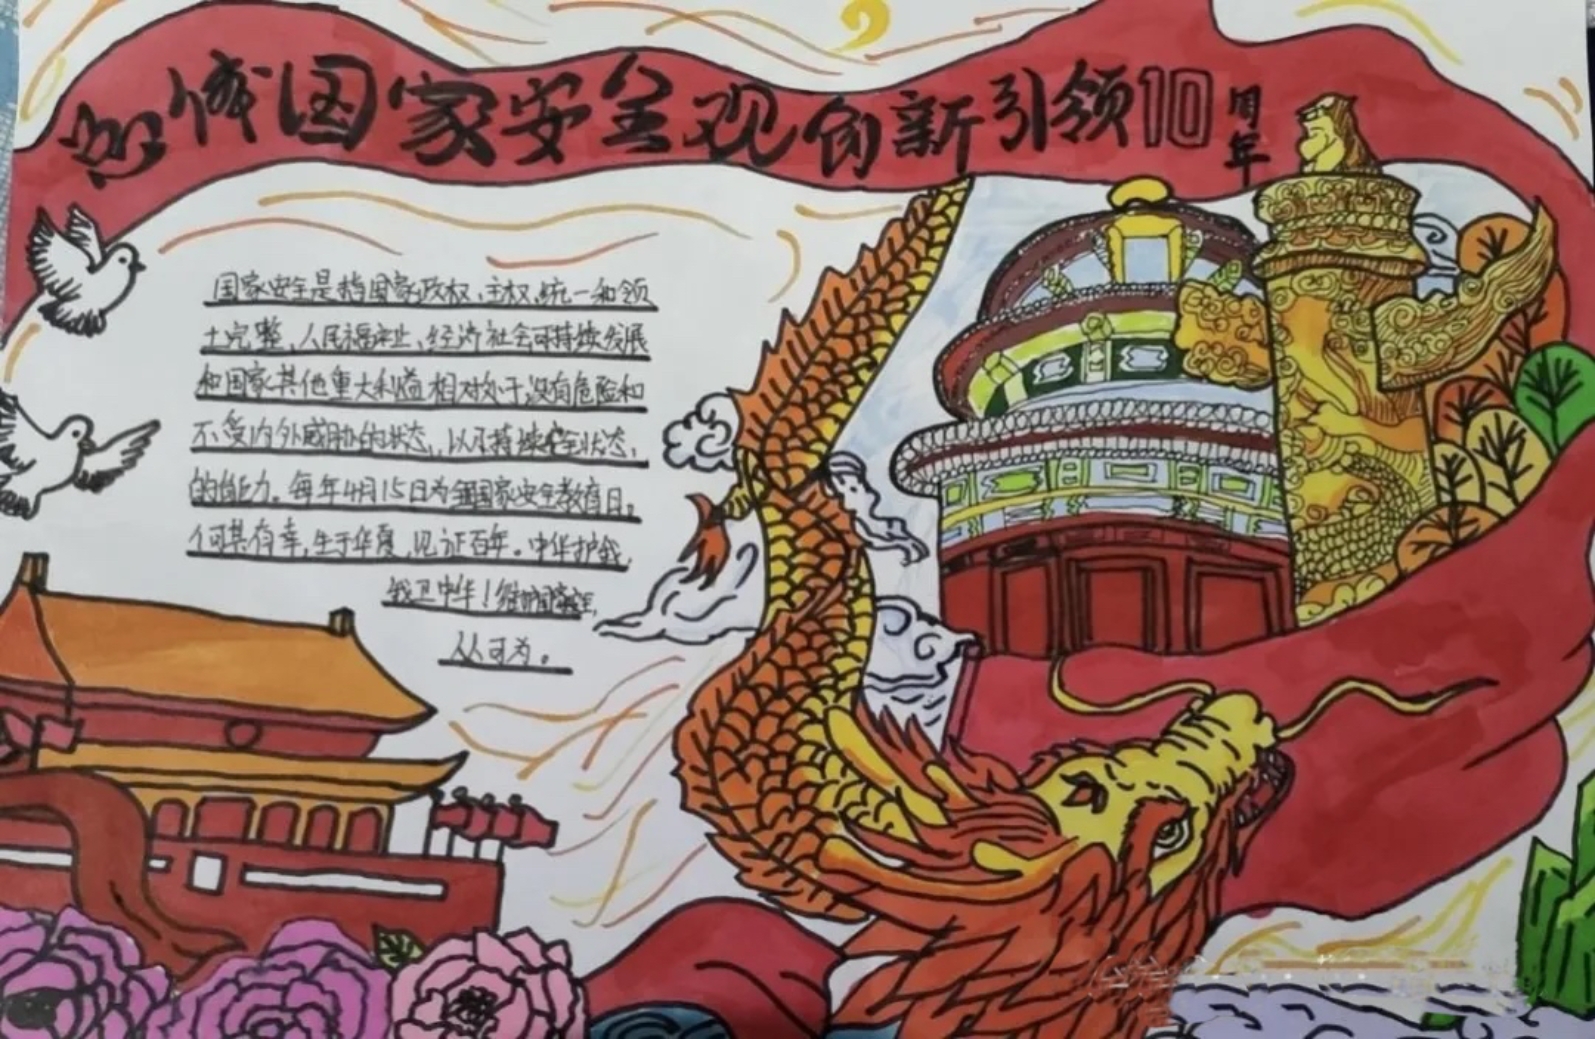 总体国家安全观创新引领10周年
国家安全是指国家政权、主权、统一和领
土完整、人民福祉、经济社会可持续发展
和国家其他重大利益相对处于没有危险和
不受内外威胁的状态,以及持续安全状态,
的能力。每年4月15日为全国国家安全教育日。
何其有幸,生于华夏,见证百年。中华护我,
我卫中华!维护国家安全,
人人可为。